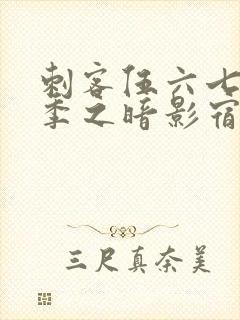 刺客伍六七
季之暗影宿
三尺真奈美